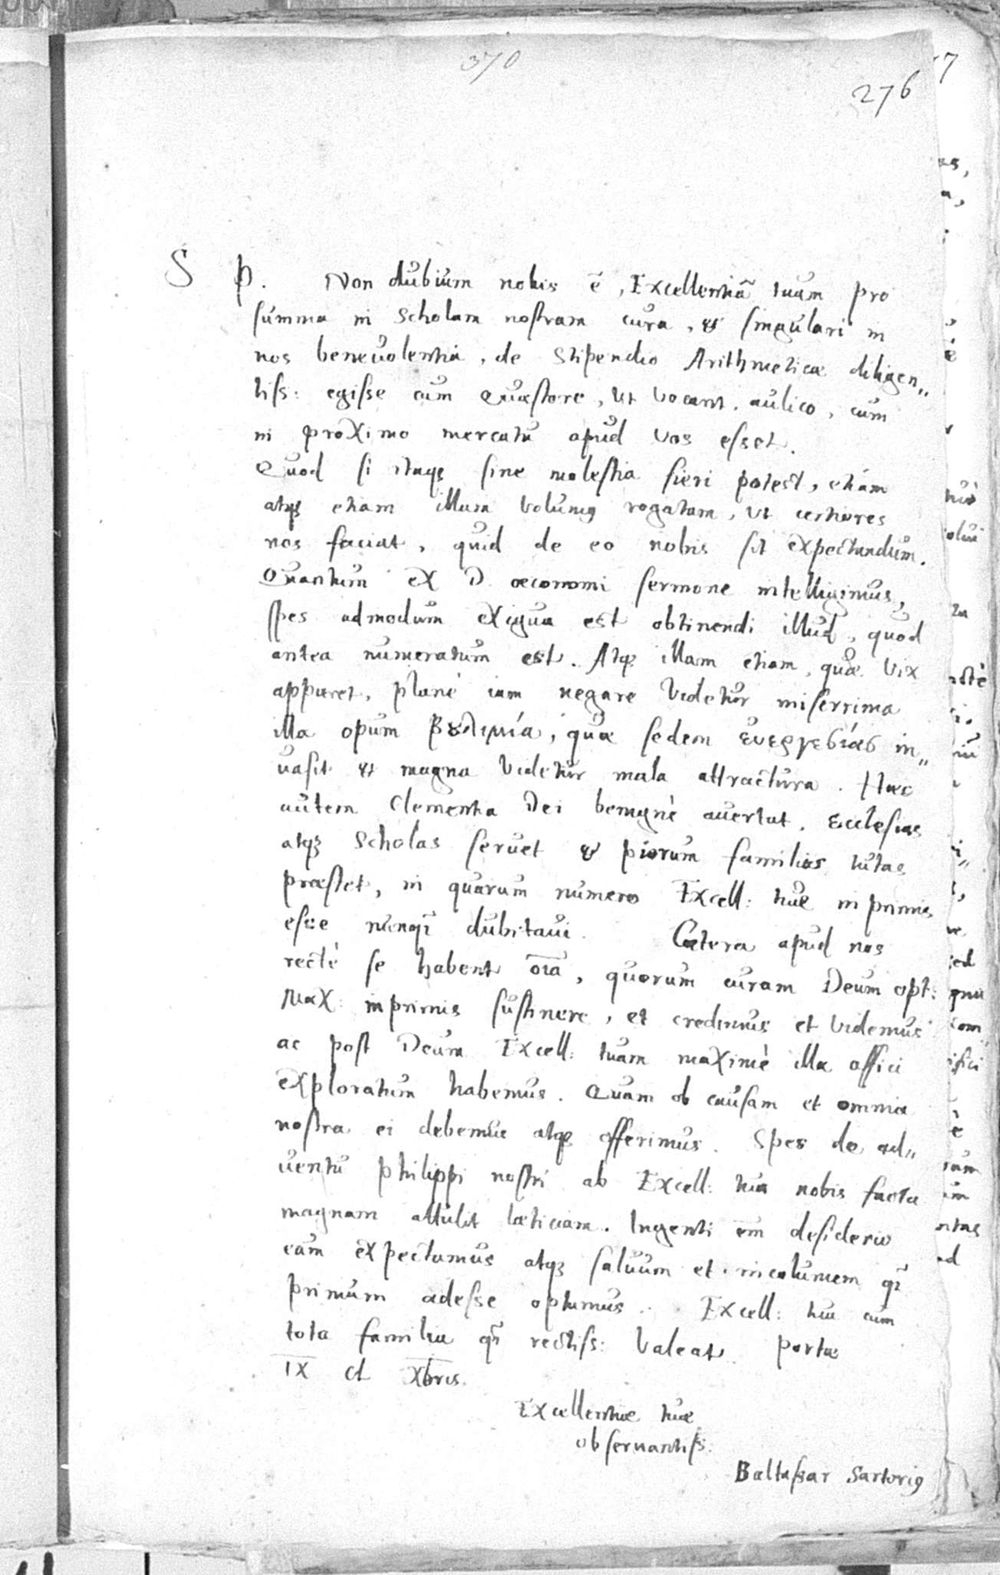 370
276
S P. Non dubium nobis ẽ, Excellentiã tuam pro
summa in Scholam nostram cura, & singulari in
nos beneuolentia, de Stipendio Arithmeticæ diligen„
tiss: egisse cum Quæstore, ut vocant, aulico, cum
in proximo mercatu apud vos esset.
Quod si itaqȝ sine molestia fieri potest, etiam
atqȝ etiam illum volumꝰ rogatam, ut certiores
nos faciat, quid de eo nobis sit expectandum.
Quantum ex D. œconomi sermone intelligimus,
spes admodum exigua est obtinendi illud, quod
antea numeratum est. Atqȝ illam etiam, quæ vix
apparet, planè iam negare videtur miserrima
illa opum βȣλιμία, quæ sedem ἐυεργεσίας in„
uasit et magna videtur mala attractura. Hæc
autem clementia Dei benignè auertat, Ecclesias
atqȝ Scholas seruet & piorum familias tutas
præstet, in quarum numero Excell: tuæ in primis
esse nunq̃ dubitaui. Cætera apud nos
rectè se habent oĩa, quorum curam Deum opt:
Max: inprimis sustinere, et credimus et videmus
ac post Deum Excell: tuam maximè illa affici
exploratum habemus. Quam ob causam et omnia
nostra ei debemus atqȝ offerimus. Spes de ad„
uentu Philippi nostri ab Excell: tua nobis facta
magnam attulit læticiam. Ingenti em̃ desiderio
eum expectamus atqȝ saluum et incolumem q̃
primum adesse optamus. Excell: tua cum
tota familia q̃ rectiss: valeat. Portæ
IX Cl Xbris.
Excellentiæ tuæ
obseruantiss.
Baltassar Sartoriꝰ